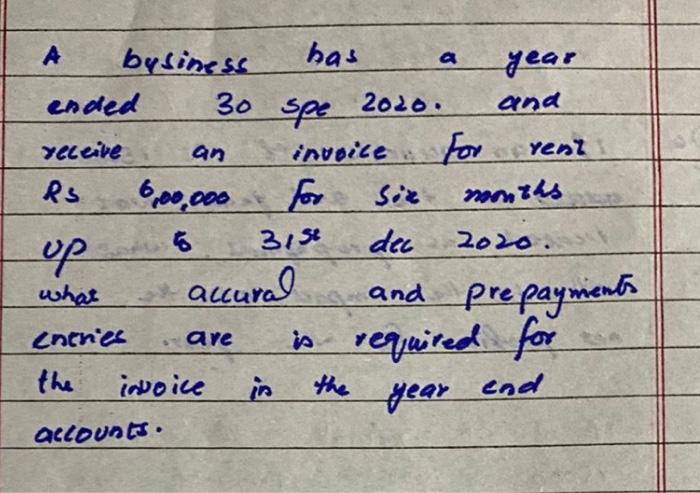 A bysiness has a year
ended 30 spe 2020. and
receive an invoice for rent
Rs 6,00,000 for six months
up to 31st dec 2020.
what accural and prepayments
entries are is required for
the invoice in the year end
accounts.